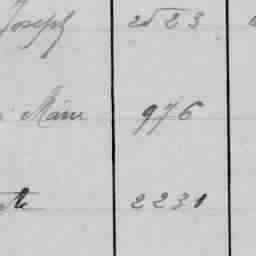 Joseph 2523
Marie 976
2231